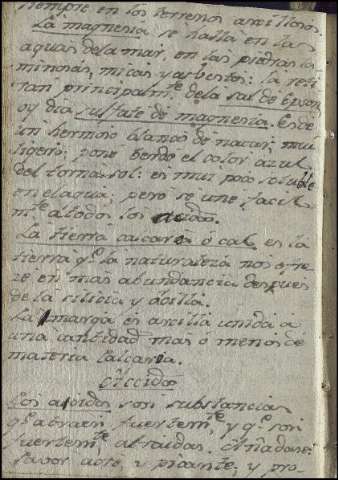 siempre en los terrenos arcillosos.
La magnesia se halla en las
aguas de la mar, en las piedras
minosas, micas y asbestos: la reti
ran principalm.te de la sal de Epson
oy dia sulfato de magnesia. Es de
un hermoso blanco de nacar, muy
ligero; pone berde el color azul
del tornasol: es muy poco soluble
en el agua; pero se une facil
m.te a todos los acidos.
La tierra calcarea ó cal, es la
tierra q.e la naturaleza nos ofre
ze en mas abundancia despues
de la silicia y arcilla.
La marga es arcilla unida a
una cantidad mas o menos de
materia calcarea.
Accidos
Los acidos son substancias
q.e atraen fuertem.te, y q.e son
fuertem.te atraidas.
savor acre, y picante; y pro-